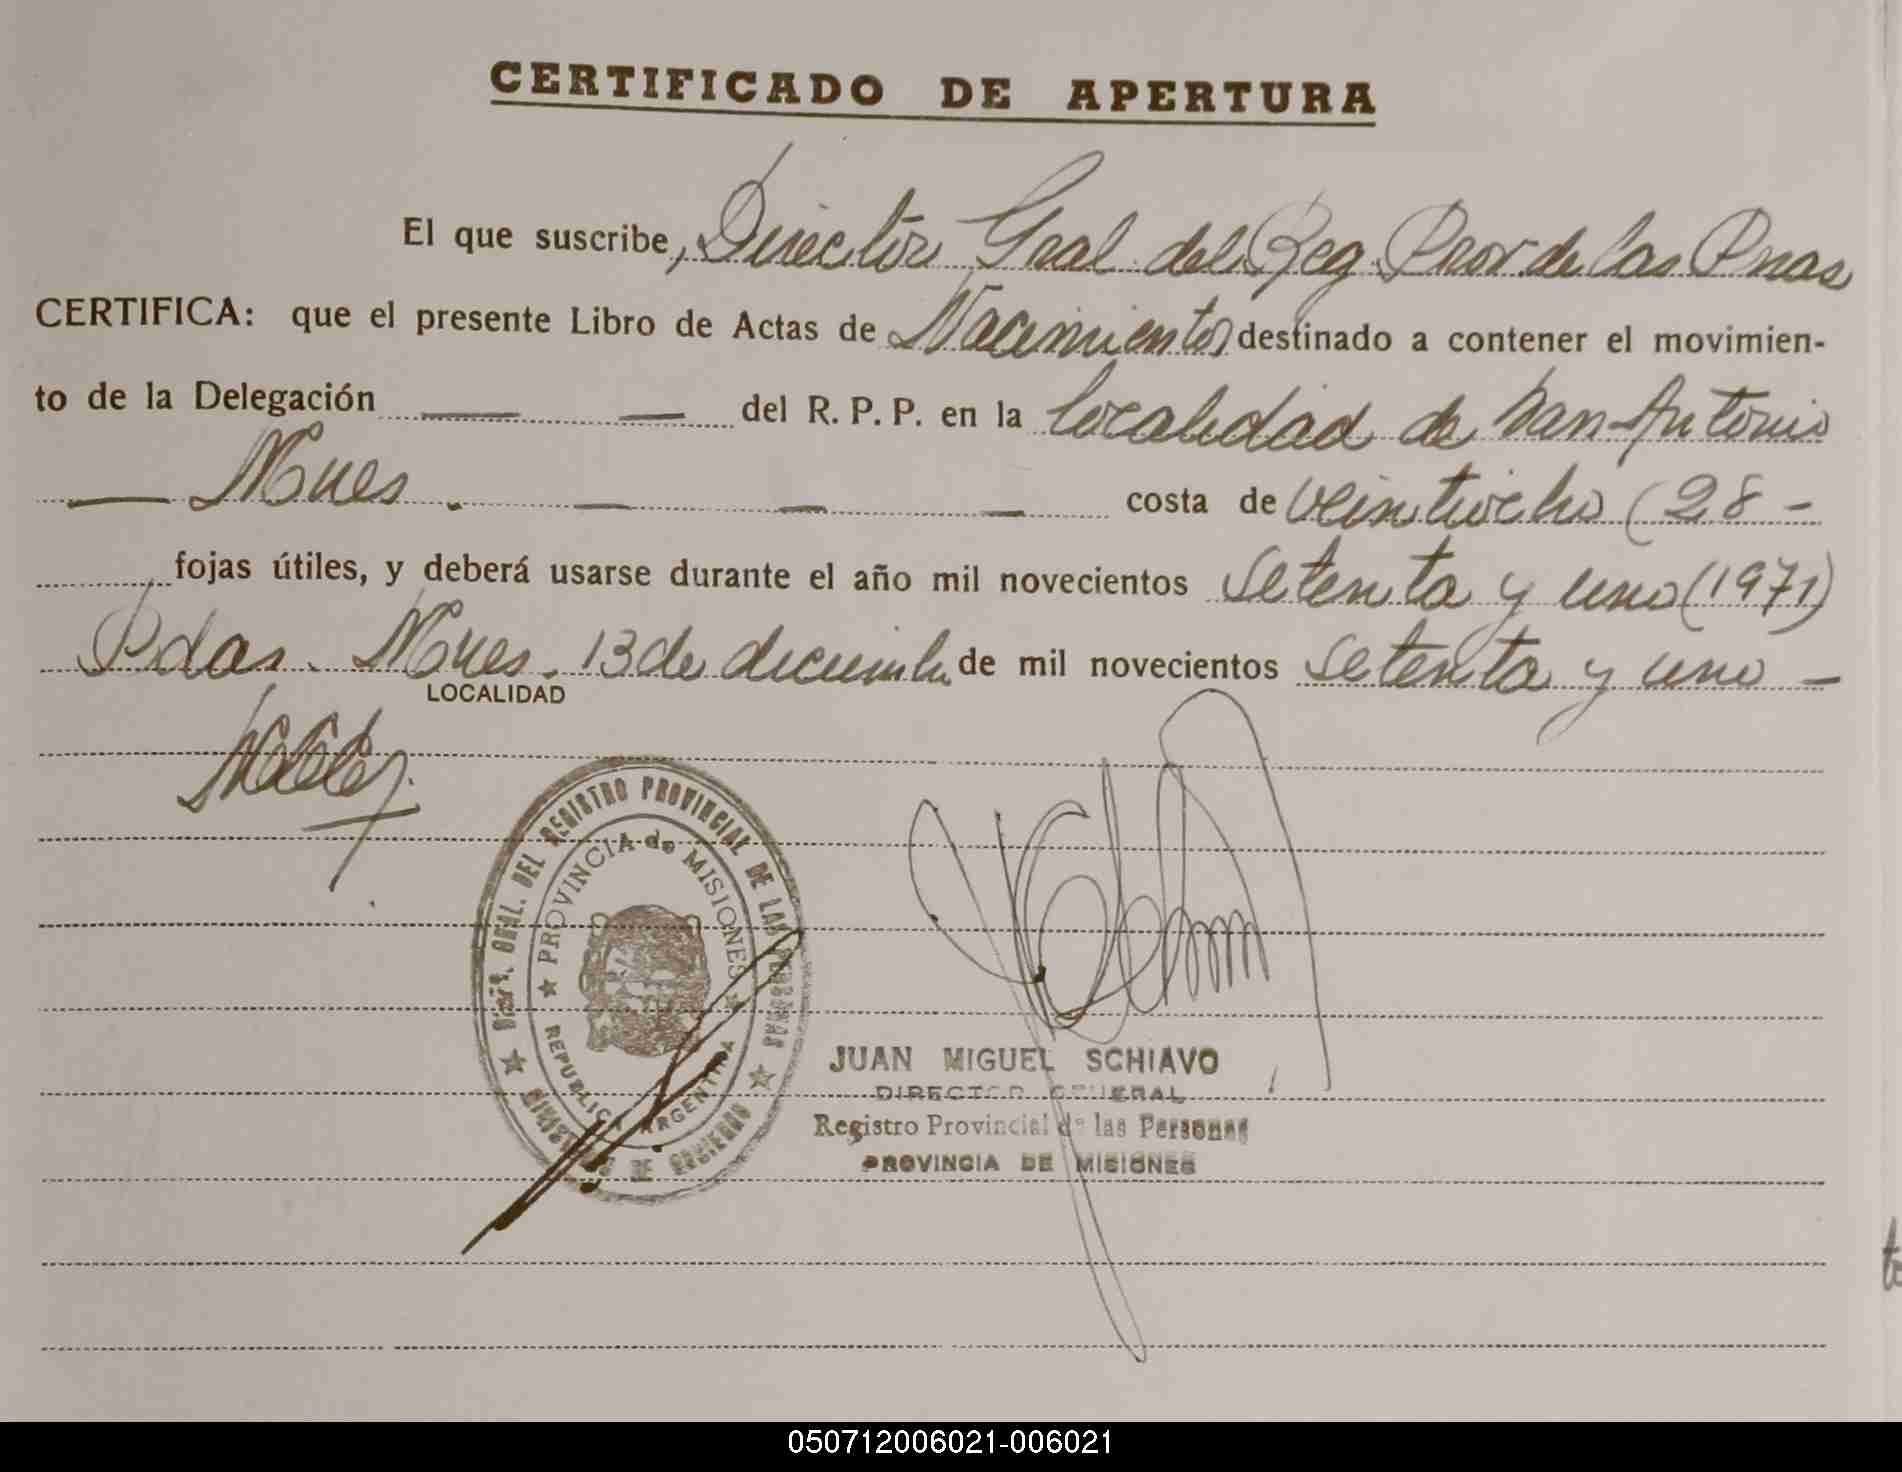 CERTIFICADO DE APERTURA
El que suscribe, Director Gral del Reg. Prov. de las Pnas
CERTIFICA: que el presente Libro de Actas de Nacimientos destinado a contener el movimien-
to de la Delegación — — del R. P. P. en la localidad de San Antonio
— Mnes. — — — costa de veintiocho (28 -
fojas útiles, y deberá usarse durante el año mil novecientos setenta y uno (1971)
Pdas. Mnes. 13 de diciembre de mil novecientos setenta y uno —
LOCALIDAD
GRAL. DEL REGISTRO PROVINCIAL DE LAS PERSONAS
★ PROVINCIA de MISIONES ★
REPUBLICA ARGENTINA
★ MINISTERIO DE GOBIERNO ★
JUAN MIGUEL SCHIAVO
DIRECTOR GENERAL
Registro Provincial de las Personas
PROVINCIA DE MISIONES
050712006021-006021